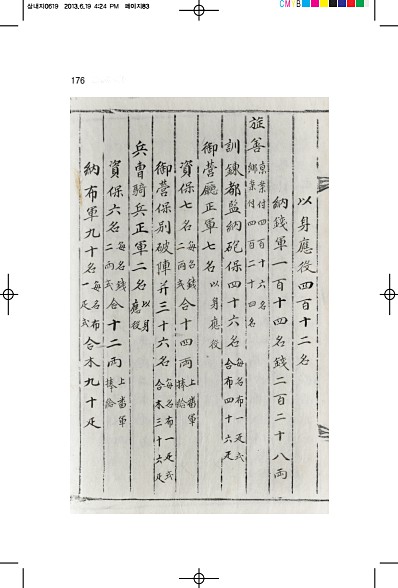 삼내지0619 2013.6.19 4:24 PM 페이지83
CMYB
176
以身應役四百十二名
納錢軍一百十四名錢二百二十八兩
旌善 京案付四百十六名 鄕案付四百二十四名
訓鍊都監納砲保四十六名 每名布一疋式 合布四十六疋
御營廳正軍七名 以身應役
資保七名 每名錢二兩式 合十四兩 上番軍捧給
御營保別破陣幷三十六名 每名布一疋式 合木三十六疋
兵曺騎兵正軍二名 以身應役
資保六名 每名錢二兩式 合十二兩 上番軍捧給
納布軍九十名 每名布一疋式 合木九十疋